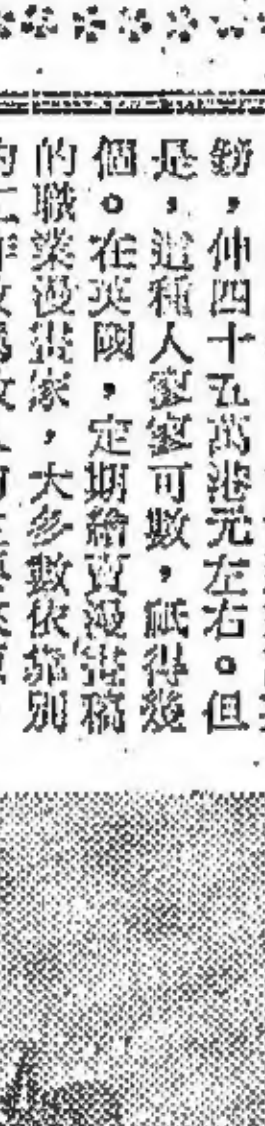 鎊，仲四十五萬港元左右。但
是，這種人寥寥可數，祇得幾
個。在英國，定期繪賣漫畫稿
的職業漫畫家，大多數依靠別